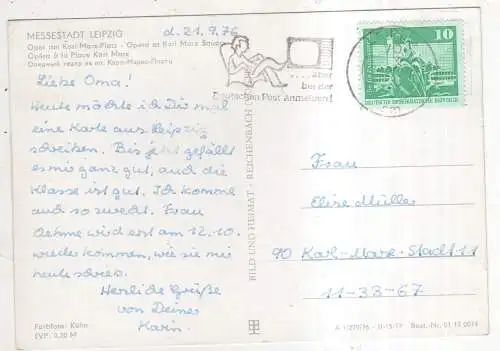 MESSESTADT LEIPZIG
Oper am Karl-Marx-Platz - Opera at Karl Marx Square
Opéra à la Place Karl Marx
Оперный театр на пл. Карл-Маркс-Платц
d. 21.9.76
Liebe Oma!
Heute möchte ich Dir mal
eine Karte aus Leipzig
schreiben. Bis jetzt gefällt
es mir ganz gut, auch die
Klasse ist gut. Ich komme
auch so zurecht. Frau
Oehme wird erst am 12.10.
wieder kommen, wie sie mir
heute schrieb.
Herzliche Grüße
von Deiner
Karin.
Farbfoto: Kühn
EVP: 0,20 M
BILD UND HEIMAT · REICHENBACH
... aber
bei der
Deutschen Post anmelden!
10
Frau
Elise Müller
90 Karl-Marx-Stadt 11
11-33-67
A 1/279/76 II-15-17 Best.-Nr. 01 13 0014